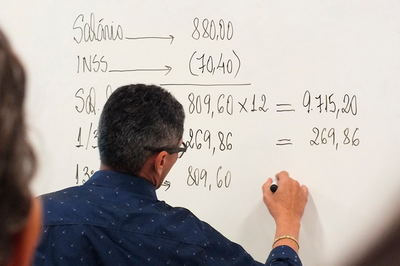 Salário → 880,00
INSS → (70,40)
809,60 x 12 = 9.715,20
269,86 = 269,86
→ 809,60